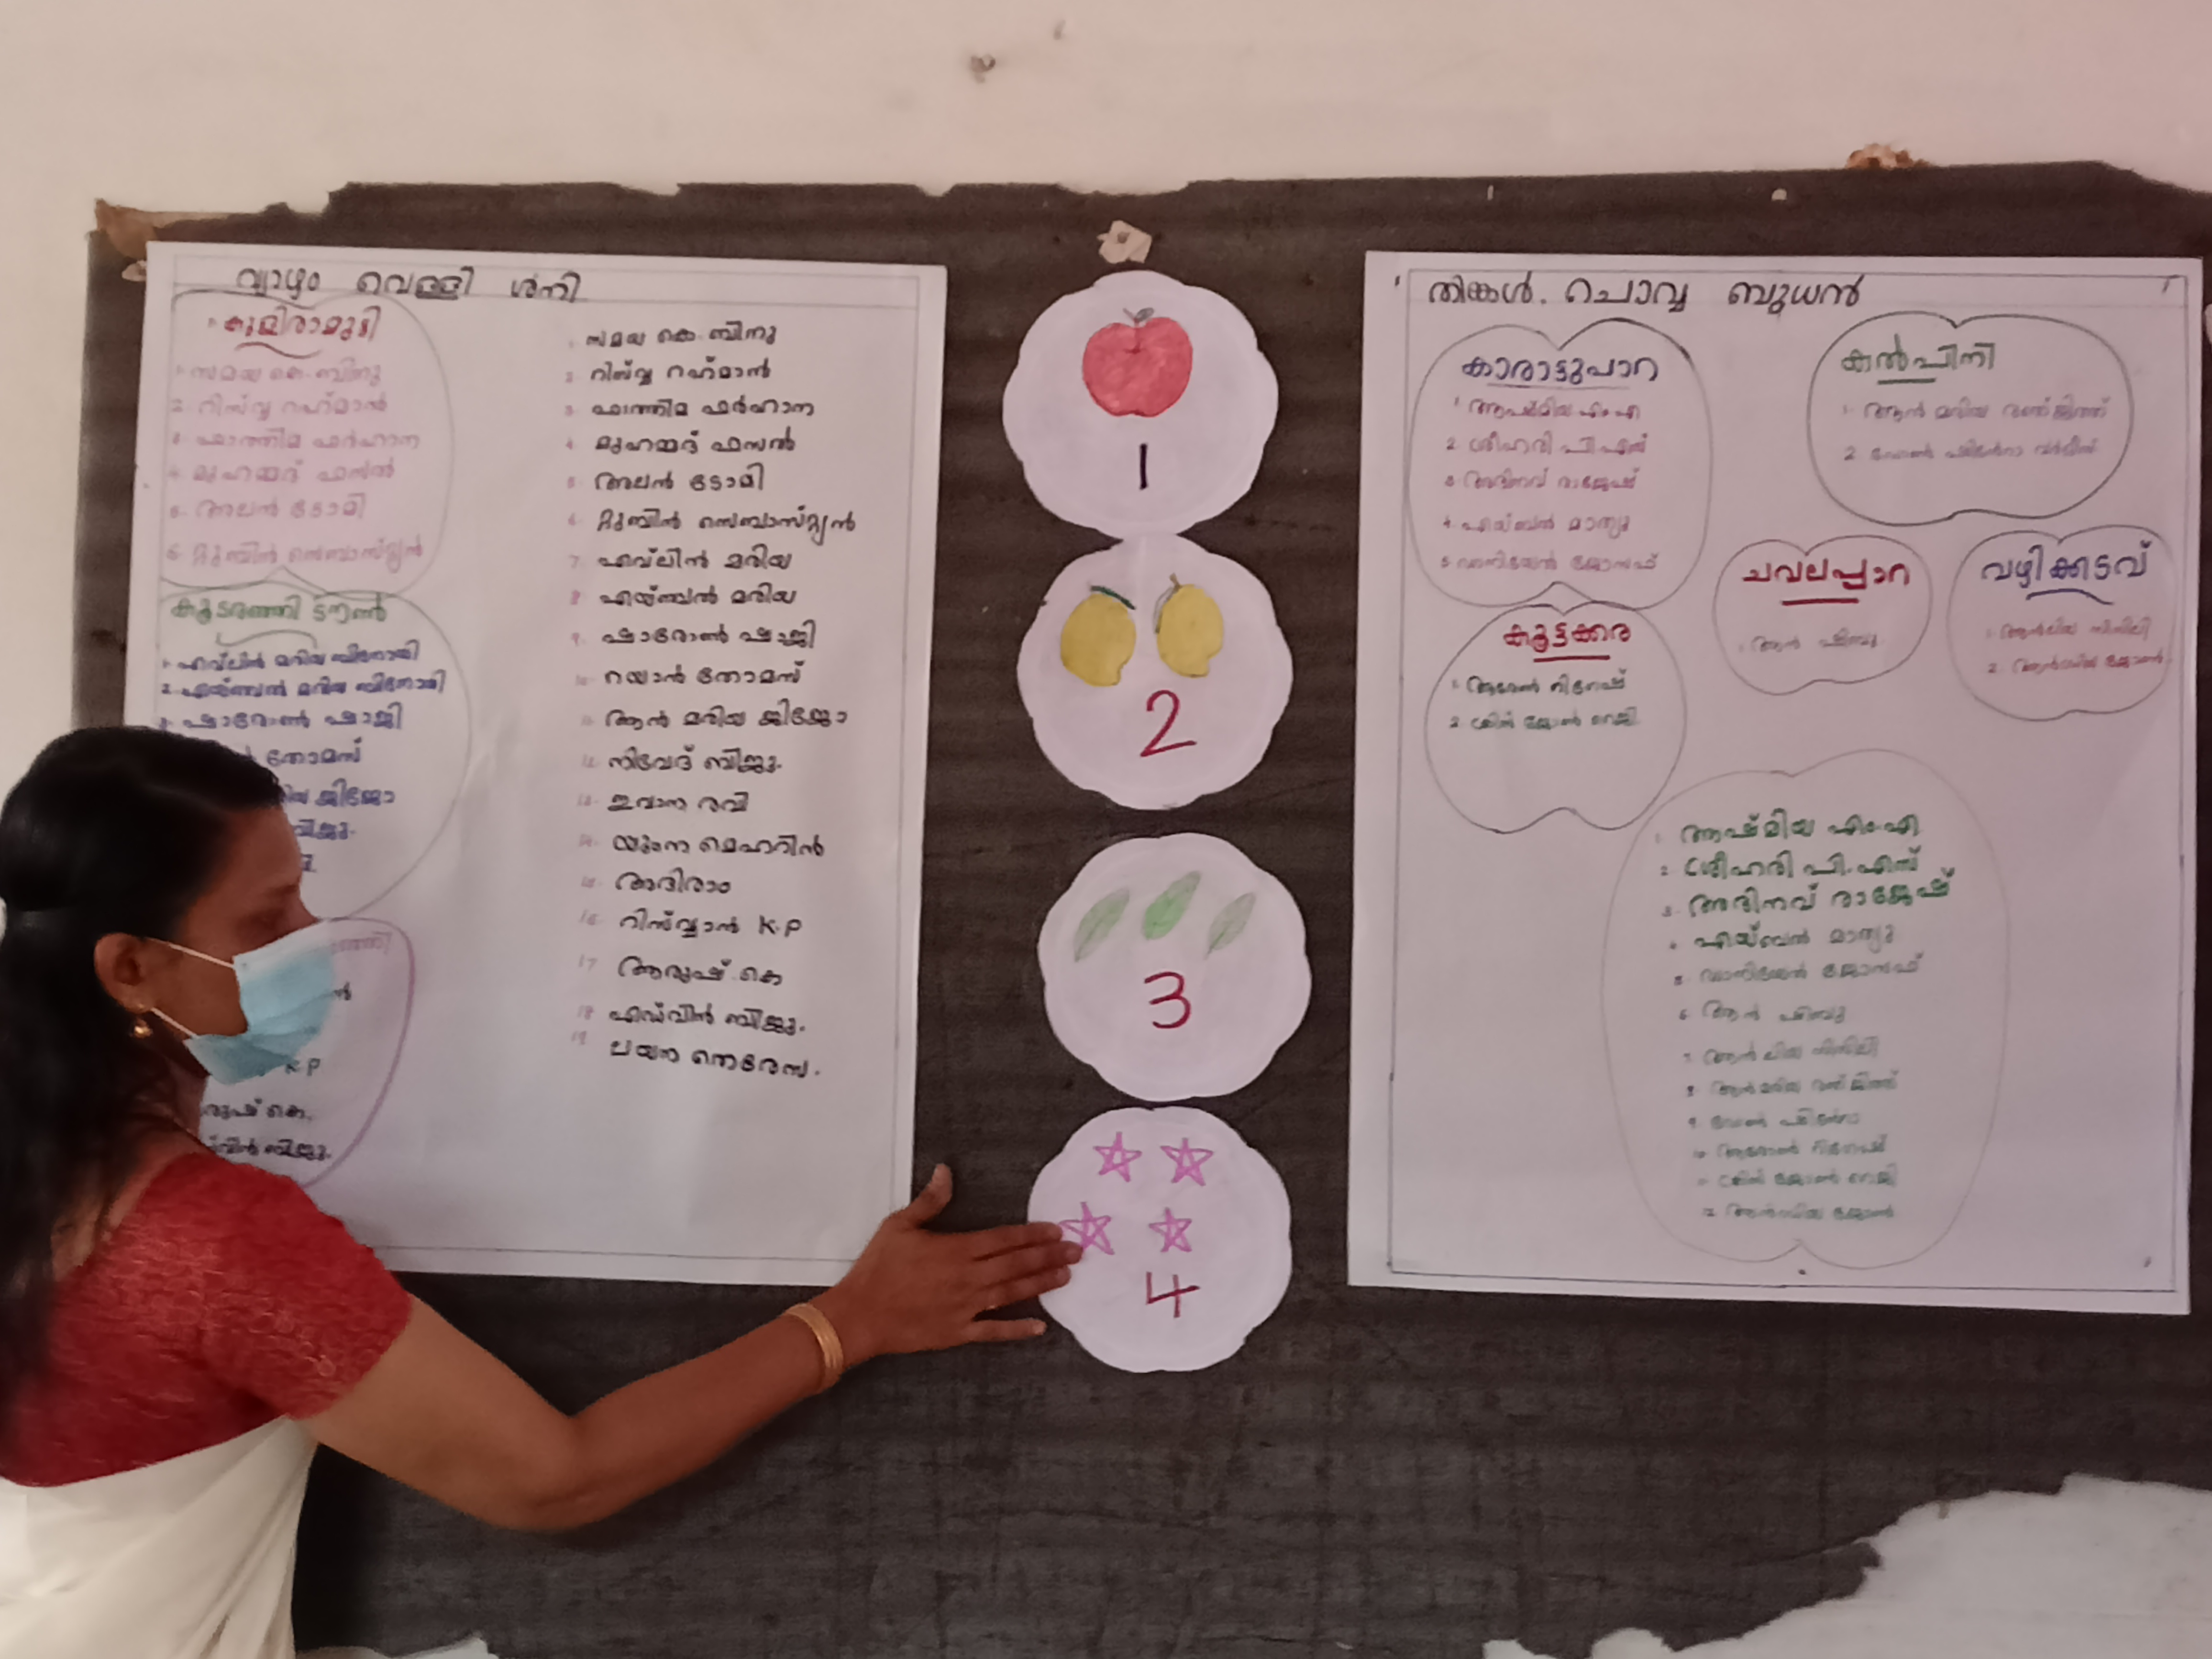 വ്യാഴം വെള്ളി ശനി
കൂമ്പിരാമുട്ടി
1. സമയ കെ. ബിനു
2. റിസ്വ റഹ്മാൻ
3. ഫാത്തിമ ഫർഹാന
4. മുഹമ്മദ് ഫസൽ
5. അലൻ ടോമി
6. റ്റുബിൻ സെബാസ്റ്റ്യൻ
കൂടരഞ്ഞി ടൗൺ
1. എവ്ലിൻ മരിയ ബിനോയി
2. എയ്ഞ്ചൽ മരിയ ബിനോയി
3. ഷാരോൺ ഷാജി
തോമസ്
ജിജോ
ബിജു.
K.P
രുഷ് കെ.
വിൻ ബിജു.
1. സമയ കെ. ബിനു
2. റിസ്വ റഹ്മാൻ
3. ഫാത്തിമ ഫർഹാന
4. മുഹമ്മദ് ഫസൽ
5. അലൻ ടോമി
6. റ്റുബിൻ സെബാസ്റ്റ്യൻ
7. എവ്ലിൻ മരിയ
8. എയ്ഞ്ചൽ മരിയ
9. ഷാരോൺ ഷാജി
10. റയാൻ തോമസ്
11. ആൻ മരിയ ജിജോ
12. നിവേദ് ബിജു.
13. ഇവാന രവി
14. യുംന മെഹറിൻ
15. അദിരാം
16. റിസ്വാൻ K.P
17. ആരുഷ് കെ
18. എഡ്വിൻ ബിജു.
19. ലയന തെരേസ.
1
2
3
4
തിങ്കൾ. ചൊവ്വ ബുധൻ
കാരാട്ടുപാറ
1. ആഷ്മിയ എം.എ
2. ശ്രീഹരി പി.എസ്
3. അഭിനവ് രാജേഷ്
4. എയ്ബൽ മാത്യു
5. ഡാനിയേൽ ജോസഫ്
കൽപിനി
1. ആൻ മരിയ രഞ്ജിത്ത്
ചവലപ്പാറ
1. ആൻ ഷിബു
വഴിക്കടവ്
2. ആൻഡ്രിയ ജോൺ
കൂട്ടക്കര
1. ആരോൺ ദിനേഷ്
2. ക്രിസ് ജോൺ റെജി
1. ആഷ്മിയ എം.എ
2. ശ്രീഹരി പി.എസ്
3. അഭിനവ് രാജേഷ്
4. എയ്ബൽ മാത്യു
5. ഡാനിയേൽ ജോസഫ്
6. ആൻ ഷിബു
8. ആൻമരിയ രഞ്ജിത്ത്
10. ആരോൺ ദിനേഷ്
11. ക്രിസ് ജോൺ റെജി
12. ആൻഡ്രിയ ജോൺ